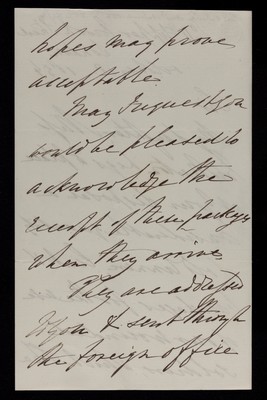 hopes may prove
acceptable.
May I request you
would be pleased to
acknowledge the
receipt of these packages
when they arrive
They are addressed
to you & sent through
the foreign office